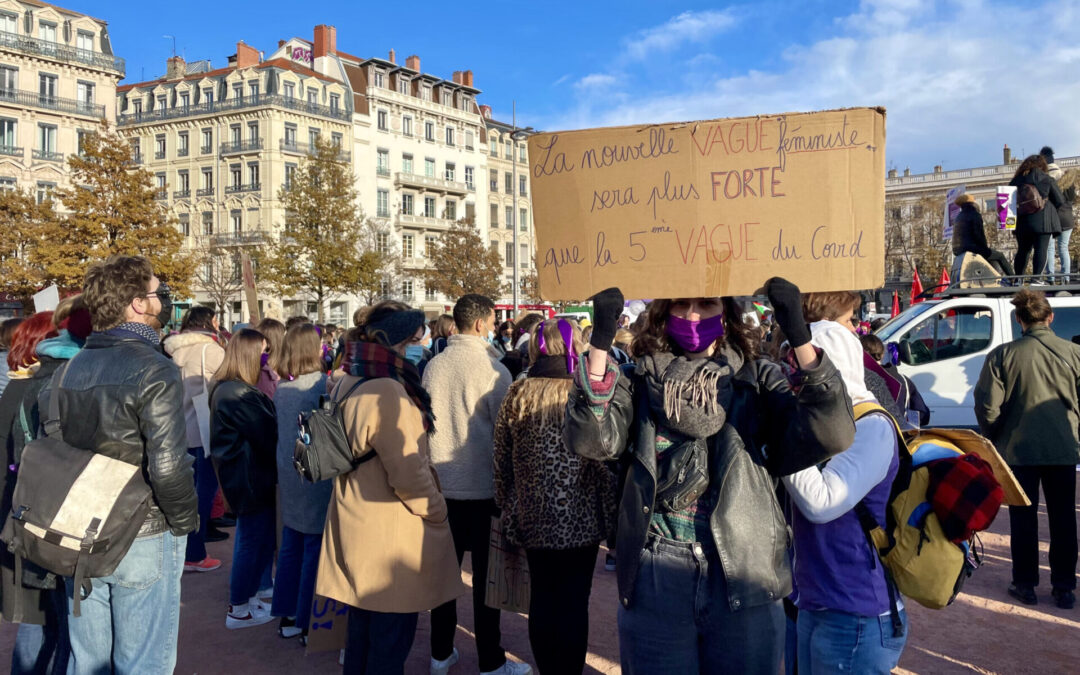 La nouvelle VAGUE féministe
sera plus FORTE
que la 5ème VAGUE du Covid